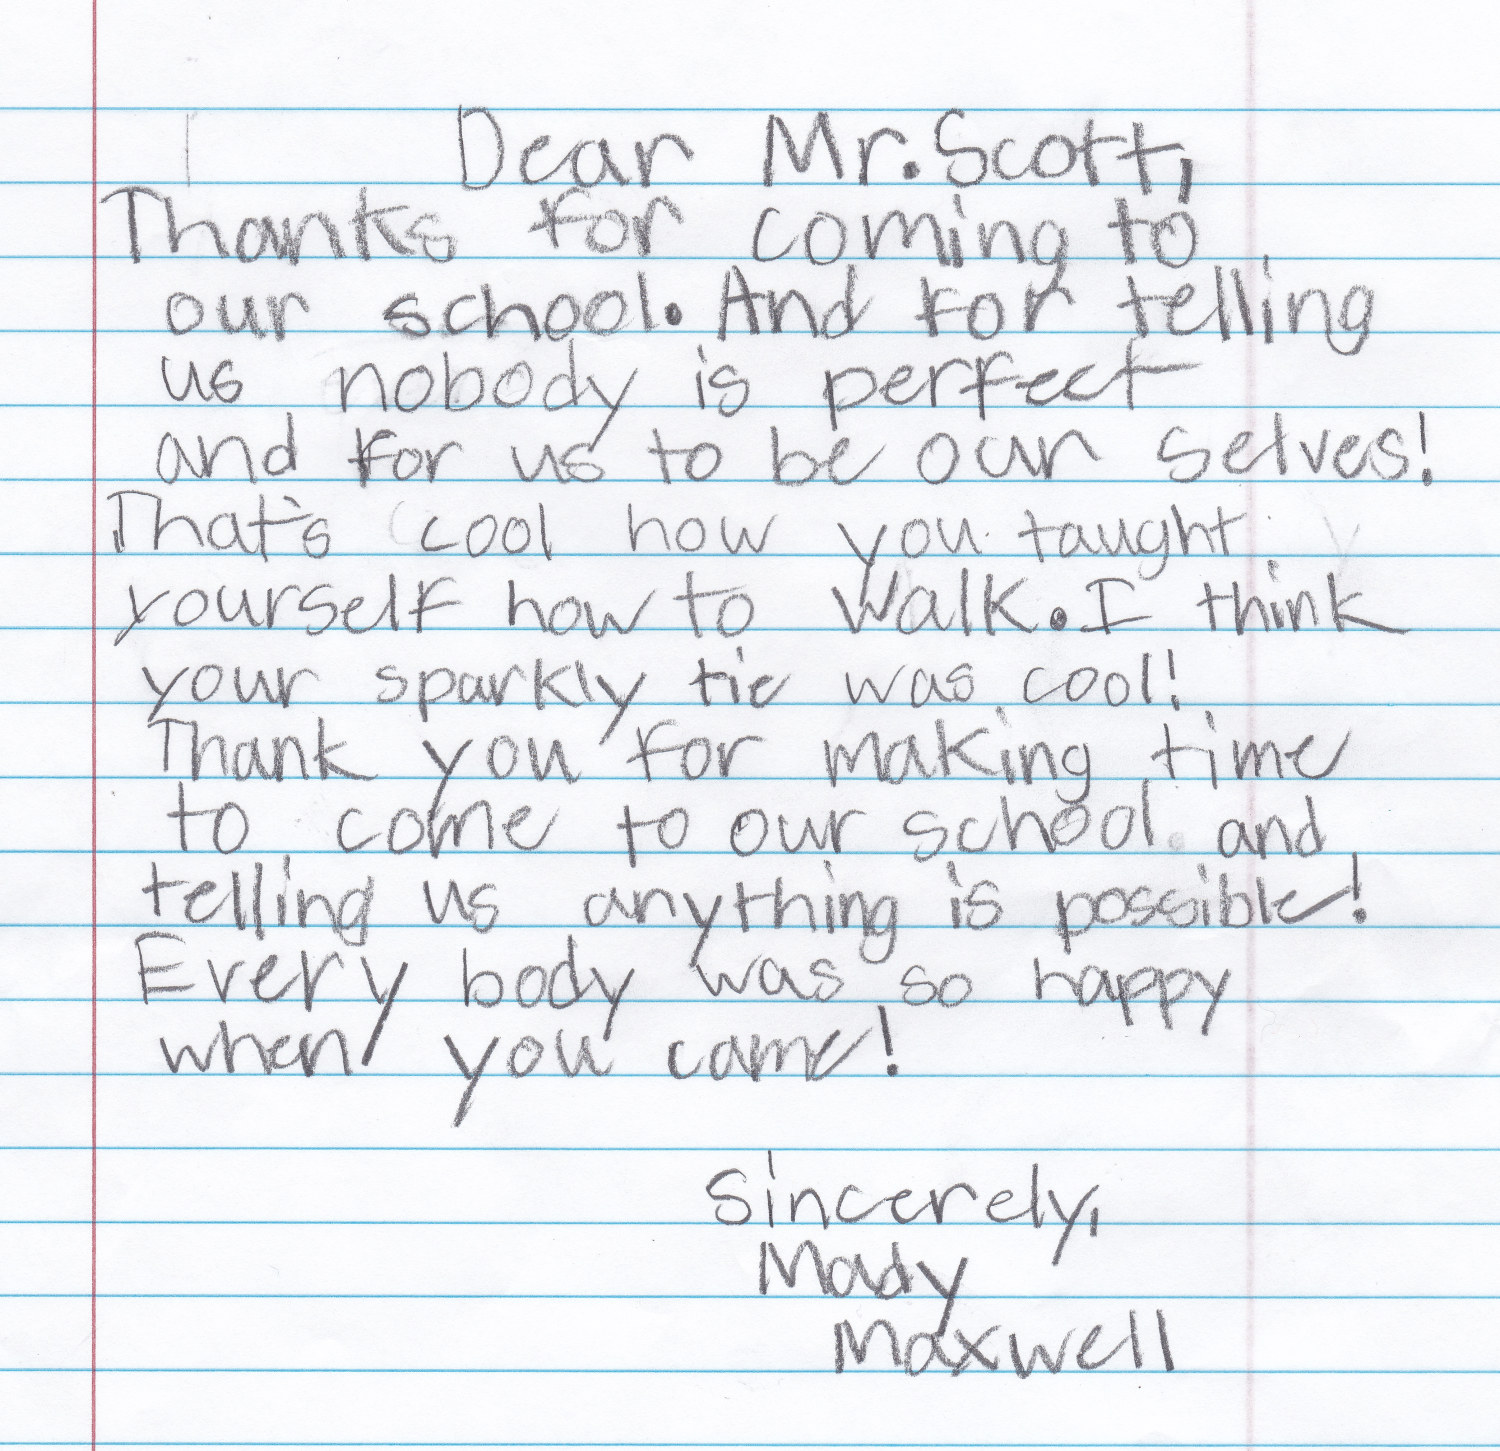 Dear Mr. Scott,
Thanks for coming to
our school. And for telling
us nobody is perfect
and for us to be our selves!
That's cool how you taught
yourself how to walk. I think
your sparkly tie was cool!
Thank you for making time
to come to our school. and
telling us anything is possible!
Every body was so happy
when you came!
Sincerely,
Mady
Maxwell